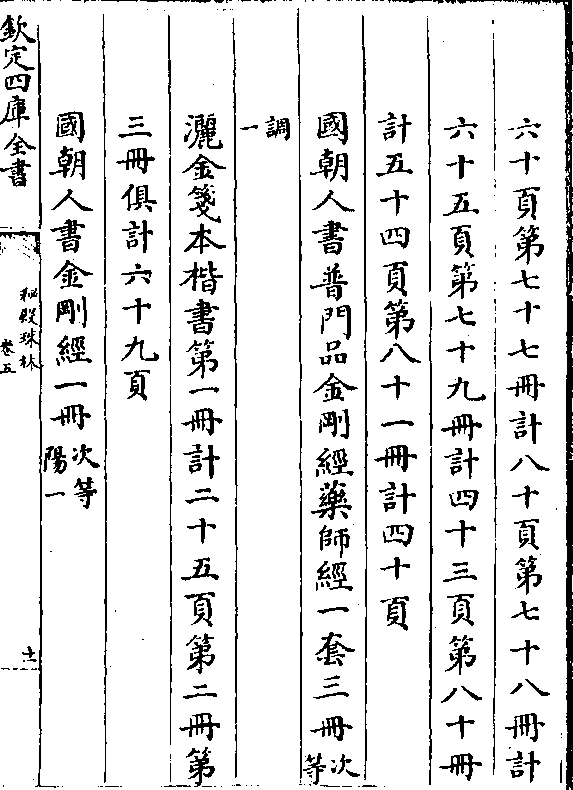 六十頁第七十七冊計八十頁第七十八冊計
六十五頁第七十九冊計四十三頁第八十冊
計五十四頁第八十一冊計四十頁
國朝人書普門品金剛經藥師經一套三冊次等
調一
灑金箋本楷書第一冊計二十五頁第二冊第
三冊俱計六十九頁
國朝人書金剛經一冊次等陽一
欽定四庫全書
秘殿珠林
卷五
十一